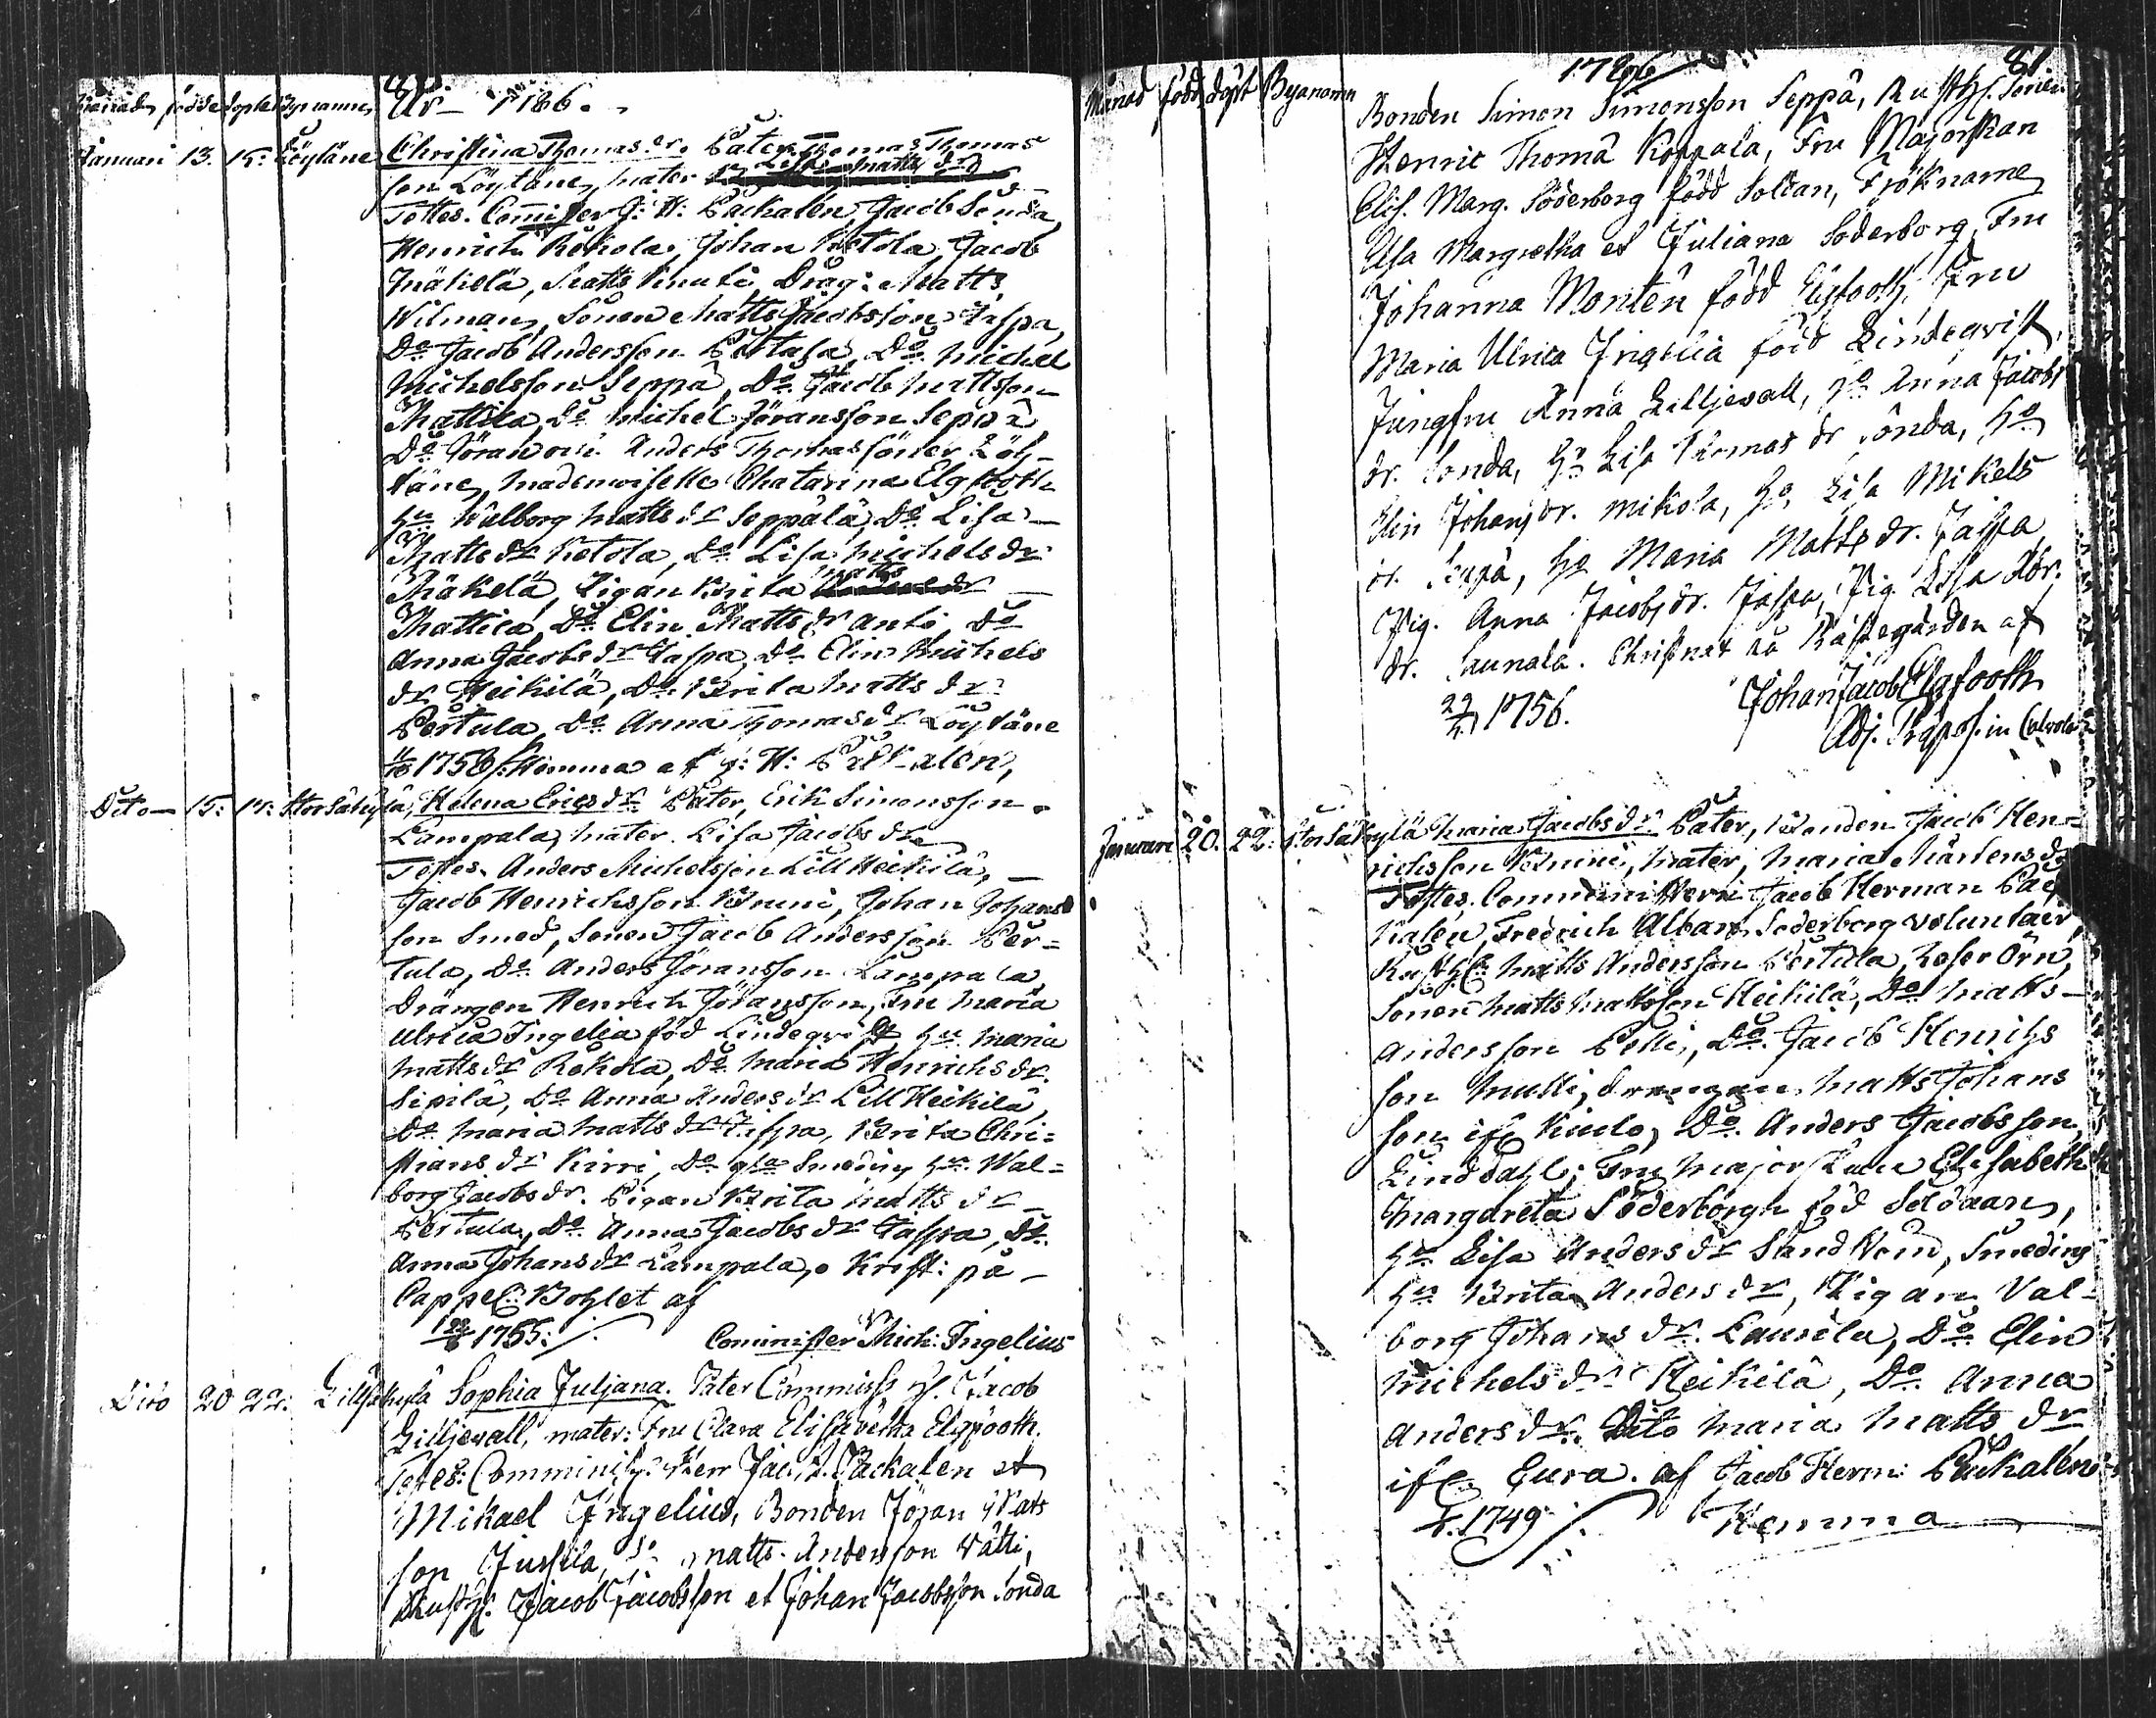 År 1786.
Månad födde döpte Bynamn
Januari 13. 15. Löytäne Christina Thomas dr. Pater Thomas Thomas
son Löytäne, mater Lisa Matts dr
Testes. Comister J: H: Packalen, Jacob Sonda,
Henrich Rekola, Johan Ketola, Jacob
Mäkelä, Matts Knuti, Dräg: Matts
Wilman, Sonen Matts Jacobsson Jaspa,
Do Jacob Andersson Pertula, Do Michel
Michelsson Seppä, Do Jacob Mattsson
Mattila, Do Michel Jöransson Seppä
Do Jöran och Anders Thomas söner Löy-
täne, Mademoiselle Chatarina Elgfooth
Hu Walborg Matts dr Seppälä, Do Lisa
Matts dr Ketola, Do Lisa Michels dr
Mäkelä, Pigan Brita Matts
Mattila, Do Elin Matts dr Anti, Do
Anna Jacobs dr Jaspa, Do Elin Michels
dr Heikilä, Do Brita Matts dr
Pertula, Do Anna Thomas dr Löytäne
1756. Hemma af J: H: Packalen,
Dito 15. 17. Storsäkylä, Helena Erics dr Pater, Erik Simonsson
Lampala, mater. Lisa Jacobs dr
Testes. Anders Michelsson Lill Heikilä,
Jacob Henrichsson Knuni, Johan Johans
son Smed, Sonen Jacob Andersson Per=
tula, Do Anders Jöransson Lampala,
Drängen Henrich Jöransson, Fru Maria
Ulrica Ingelia föd Lindeqvist, Hu Maria
Matts dr Rekola, Do Maria Henrichs dr.
Sipilä, Do Anna Anders dr Lill Heikilä,
Do Maria Matts dr Jaspa, Brita Chri=
stians dr Kirri, Do gla Smedins Hu Wal=
borg Jacobs dr. Pigan Brita Matts dr
Pertula, Do Anna Jacobs dr Jaspa, Do
Anna Johans dr Lampala, Krist: på
Cappel: Bohlet af
1755: Cominister Mich: Ingelius
Dito 20 22. Lillsäkylä Sophia Juljana. Pater Commiss Hr. Jacob
Lilljewall, mater: Fru Clara Elisabetha Elgfooth.
Testes: Comminist. Herr Jac. H. Packalen et
Mikael Ingelius, Bonden Jöran Mats
son Jussila, Do Matts Andersson Wälli,
Rusth. Jacob Jacobsson et Johan Jacobsson Sonda
1786 81
Månad född döpt Bynamn
Bonden Simon Simonsson Seppä, Rusth. Sonen
Henric Thoma Koppala, Fru Majorskan
Elis. Marg. Söderborg född Soldan, Fröknarne
Ulsa Margretha et Juliana Söderborg, Fru
Johanna Montén född Elgfooth, Fru
Maria Ulrica Ingelia född Lindeqvist,
Jungfru Anna Lilljewall, Ho Anna Jacobs
dr. Sonda, Ho Lisa Thomas dr Sonda, Ho
Elin Johans dr. Mikola, Ho Lisa Mikels
dr. Seppä, Ho Maria Matts dr. Jaspa,
Pig. Anna Jacobs dr. Jaspa, Pig Lisa Abr.
dr. Saunala. Christnat på Prästegården af
1756. Johan Jacob Elgfooth
Adj. Præpos. in Calvola
Januari 20. 22. Storsäkylä Maria Jacobs dr Pater, Bonden Jacob Hen=
richsson Knuni, Mater, Maria Mårtens dr
Testes. Comminister Jacob Herman Pac
kalen, Fredrich Alban Söderborg Voluntair,
Rusth. Matts Andersson Pertula, Loser Örn,
Sonen Matts Mattsson Heikilä, Do Matts
Andersson Pelli, Do Jacob Henrichs
son Mulli, drengen Matts Johans
son if. Kiulo, Do. Anders Jacobsson
Linddahl, Fru Majorskan Elisabeth
Margareta Söderborgh föd Soldaan,
Hu Lisa Anders dr Sandbom, Smedins
Hu Brita Anders dr, Pigan Val-
borg Johans dr. Laurila, Do Elin
Michels dr Heikilä, Do Anna
Anders dr. Dito Maria Matts dr
if. Eura. af Jacob Herm: Packalen
1749. Hemma